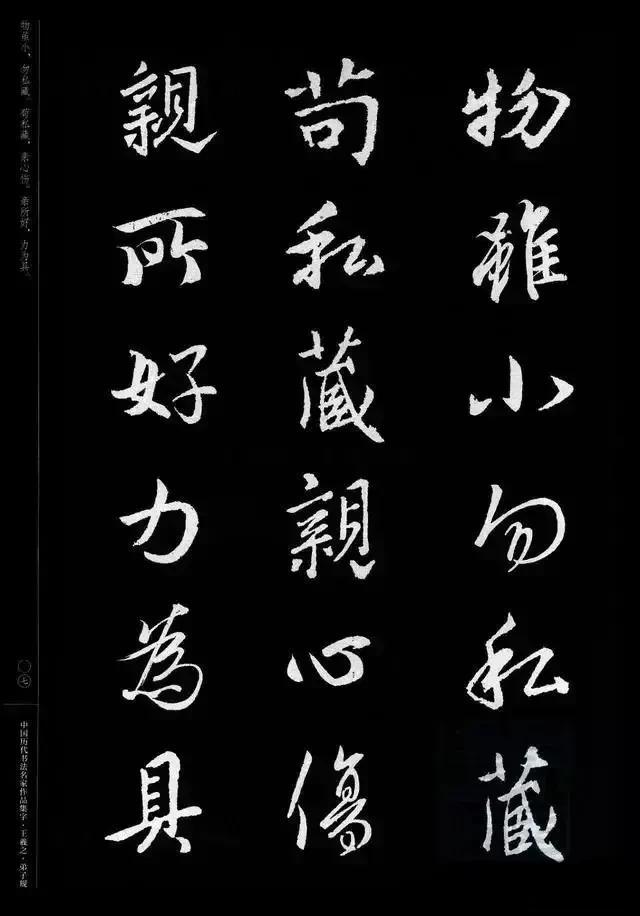 物雖小勿私藏
苟私藏親心傷
親所好力為具
物虽小，勿私藏。苟私藏，亲心伤。亲所好，力为具。
〇七
中国历代书法名家作品集字·王羲之·弟子规